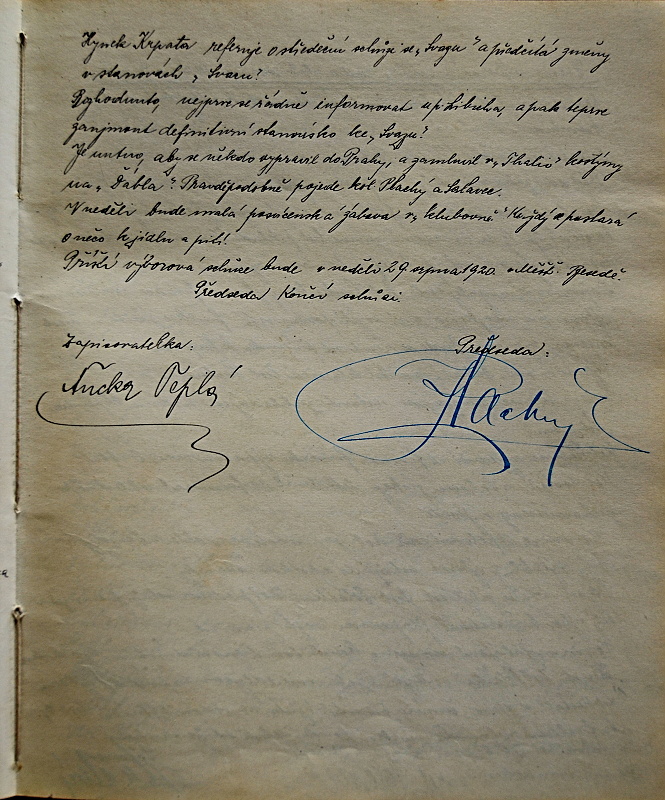 Hynek Krpata referuje o středeční schůzi se „Svazu" a předčítá změny
v stanovách „Svazu".
Rozhodnuto, nejprve se řádně informovat u p. Libicha, a pak teprve
zaujmout definitivní stanovisko ke „Svazu".
Je nutno, aby se někdo vypravil do Prahy, a zamluvil v „Thalii" kostýmy
na „Ďábla". Pravděpodobně pojede kol. Plachý a Salavec.
V neděli bude malá posvícenská zábava v „klubovně". Každý se postará
o něco k jídlu a pití.
Příští výborová schůze bude v neděli 29. srpna 1920. v Měšť. Besedě.
Předseda končí schůzi.
Zapisovatelka: Předseda:
Ančka Teplá Plachý